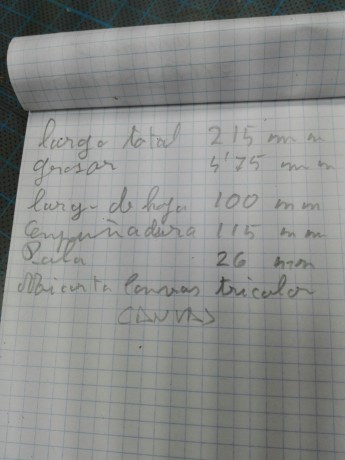 largo total 215 mm
grosor 4'75 mm
largo de hoja 100 mm
Empuñadura 115 mm
Pala 26 mm
Micarta Canvas tricolor
CANVAS